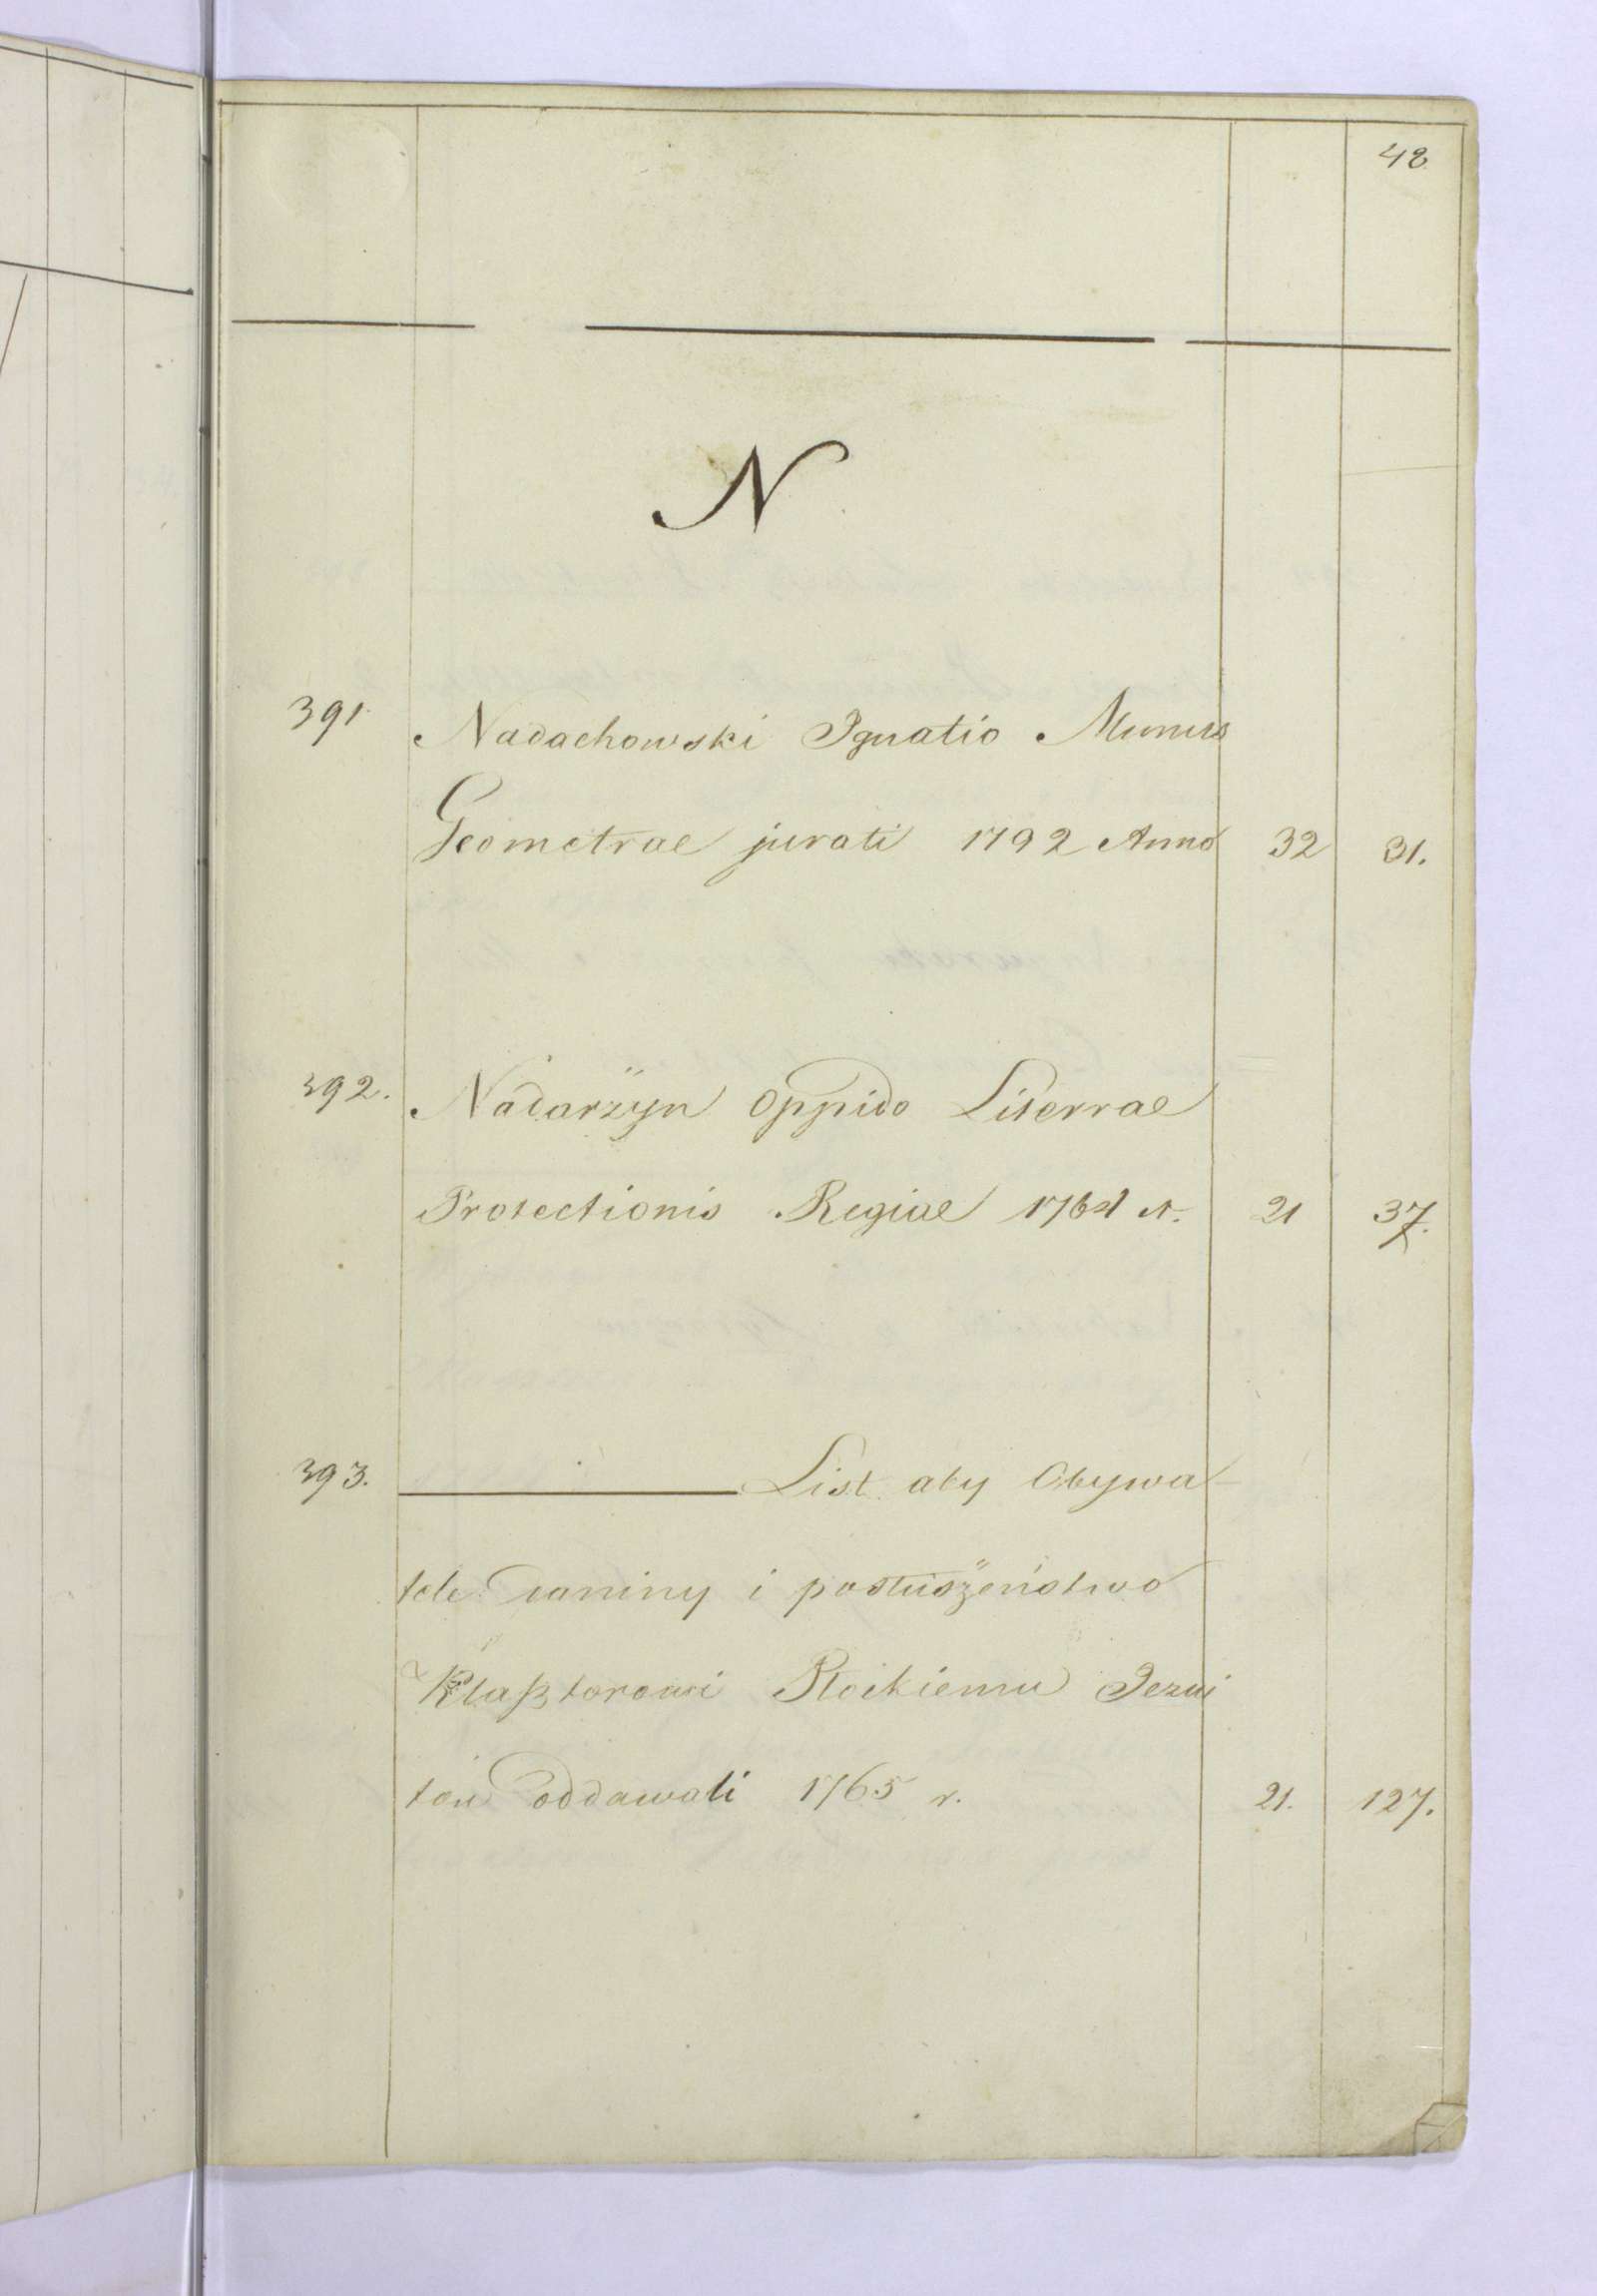 48
N
391. Nadachowski Ignatio Munus
Geometrae jurati 1792 Anno 32 31.
392. Nadarżyn Oppido Literrae
Protectionis Regiae 1764 A. 21 37.
393. ———— List aby Obywa-
tele daniny i posłuszeństwo
Klasztorowi Płockiemu Jezui
tów oddawali 1765 r. 21. 127.